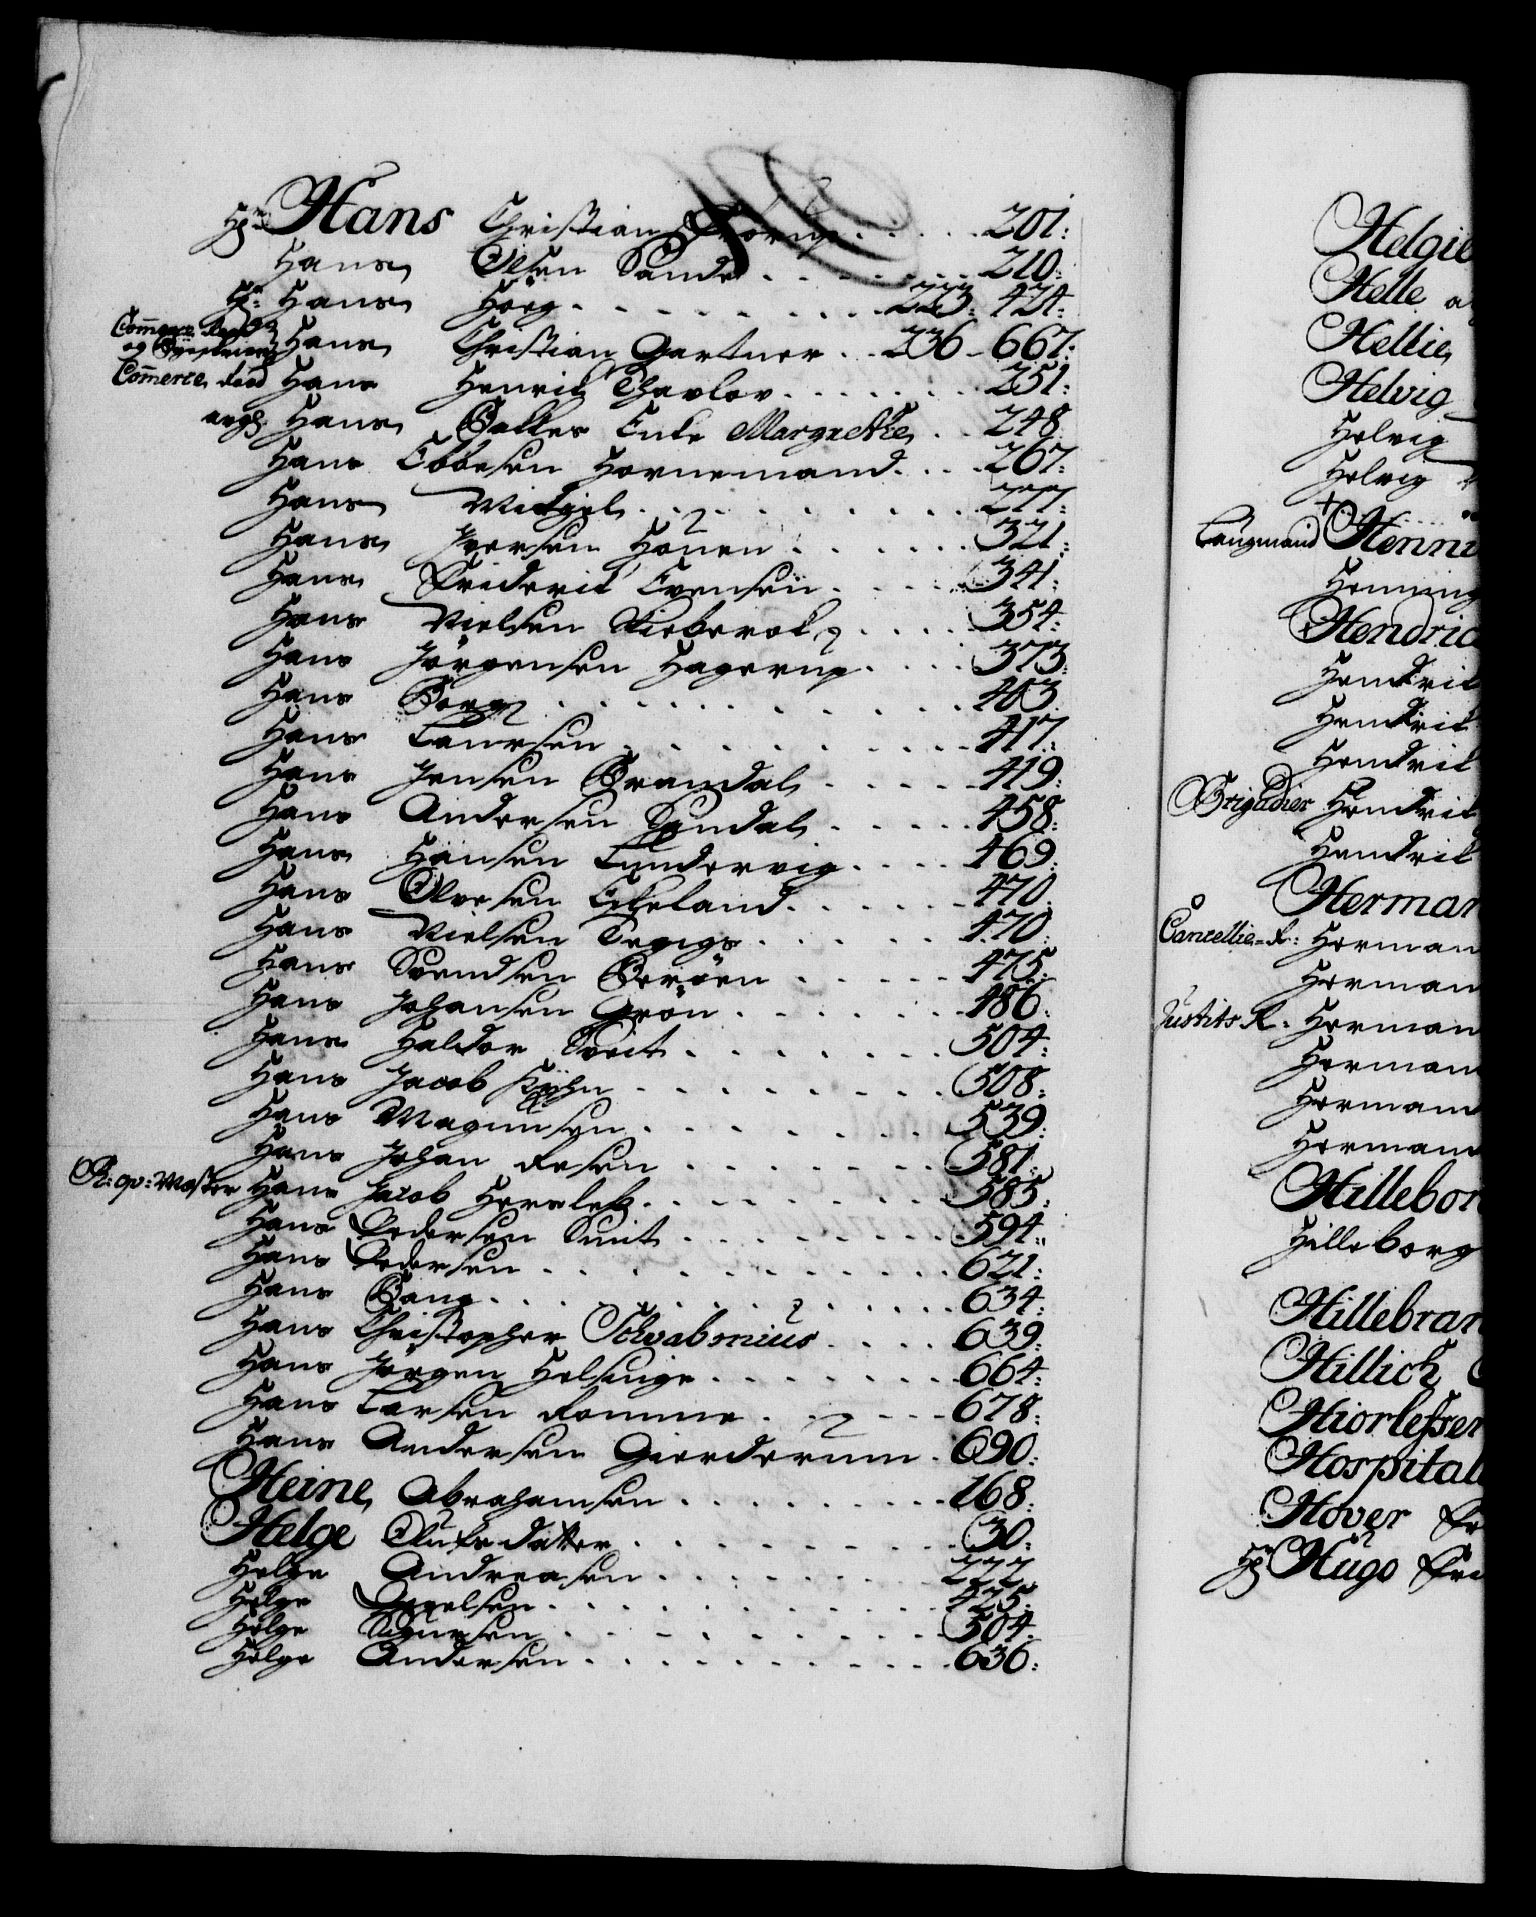 Hr: Hans Christian . . . . . 201:
Hans Olsen Sande . . . . . . . 210:
Hr: Hans Horg . . . . . . . . . 233. 424:
Commerce Raad og Hans Christian Gartner . . 236 - 667:
Commerce Raad Hans Henrik Thavlov . . . . . . . 251:
afg: Hans Bakkes Enke Margrethe . . 248
Hans Ebbesen Hornemand . . . . 267:
Hans . . . . . . . . . 277:
Hans Iversen Houen . . . . . . . 321:
Hans Friderik Evensen . . . . . 341:
Hans Nielsen . . . . . 354:
Hans Jörgensen Hagerup . . . . 373:
Hans Borg . . . . . . . . . . . 403.
Hans Laursen . . . . . . . . . 417:
Hans Jensen Brandal . . . . . 419:
Hans Andersen Sundal . . . . . 458:
Hans Hansen Lundervig . . . . 469:
Hans Olvesen Eikeland . . . . . 470.
Hans Nielsen . . . . . . 470:
Hans Svendsen Berøen . . . . . 475:
Hans Johansen Grön . . . . . . . 486:
Hans Haldor . . . . . . . 504:
Hans Jacob Kyhn . . . . . . . . 508:
Hans Magnusen . . . . . . . . 539:
Hans Johan Resen . . . . . . . 581:
R: qv: Mester Hans Jacob Hersleb . . . . . . . . 585:
Hans Pedersen Smit . . . . . . . . 594:
Hans Pedersen . . . . . . . . . . . 621:
Hans Bang . . . . . . . . . . . . . 634:
Hans Christopher Schvabenius . . . . 639:
Hans Jörgen Helsinge . . . . . . . 664:
Hans Larsen Romme . . . . . . 678:
Hans Andersen Gierderum . 690:
Heine Abrahamsen . . . . . . . . . 168:
Helge Olufsdatter . . . . . . . . . 30:
Helge Andreasen . . . . . . . . 222
Helge . . . . . . . . . . . . 475:
Helge Sigursen . . . . . . . . . . 504:
Helge Andersen . . . . . . . . . . 636:
Helgie
Helle
Hellie
Helvig
Helvig
Helvig
Laugmand Henni
Henning
Hendric
Hendrik
Hendrik
Hendrik
Brigadier Hendrik
Hendrik
Herman
Cancellie-R: Herman
Herman
Justits R: Herman
Herman
Herman
Herman
Hillebor
Hilleborg
Hillebran
Hillich
Hiorleßen
Hospital
Hover
Hr Hugo Fri